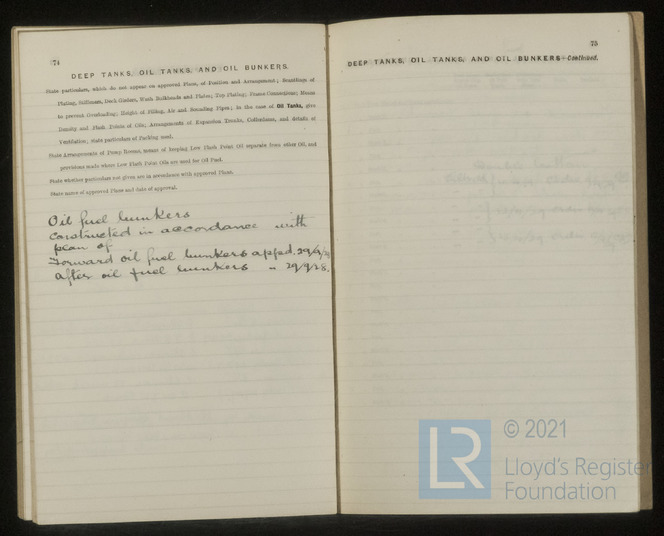 74
DEEP TANKS, OIL TANKS, AND OIL BUNKERS.
State particulars, which do not appear on approved Plans, of Position and Arrangement; Scantlings of
Plating, Stiffeners, Deck Girders, Wash Bulkheads and Plates; Top Plating; Frame Connections; Means
to prevent Overloading; Height of Filling, Air and Sounding Pipes; in the case of Oil Tanks, give
Density and Flash Points of Oils; Arrangements of Expansion Trunks, Cofferdams, and details of
Ventilation; state particulars of Packing used.
State Arrangements of Pump Rooms, means of keeping Low Flash Point Oil separate from other Oil, and
provisions made where Low Flash Point Oils are used for Oil Fuel.
State whether particulars not given are in accordance with approved Plans.
State name of approved Plans and date of approval.
Oil fuel bunkers
constructed in accordance with
plan of
Forward oil fuel bunkers appd.
after oil fuel bunkers " 29/9/28.
75
DEEP TANKS, OIL TANKS, AND OIL BUNKERS—Continued.
LR
© 2021
Lloyd's Register
Foundation